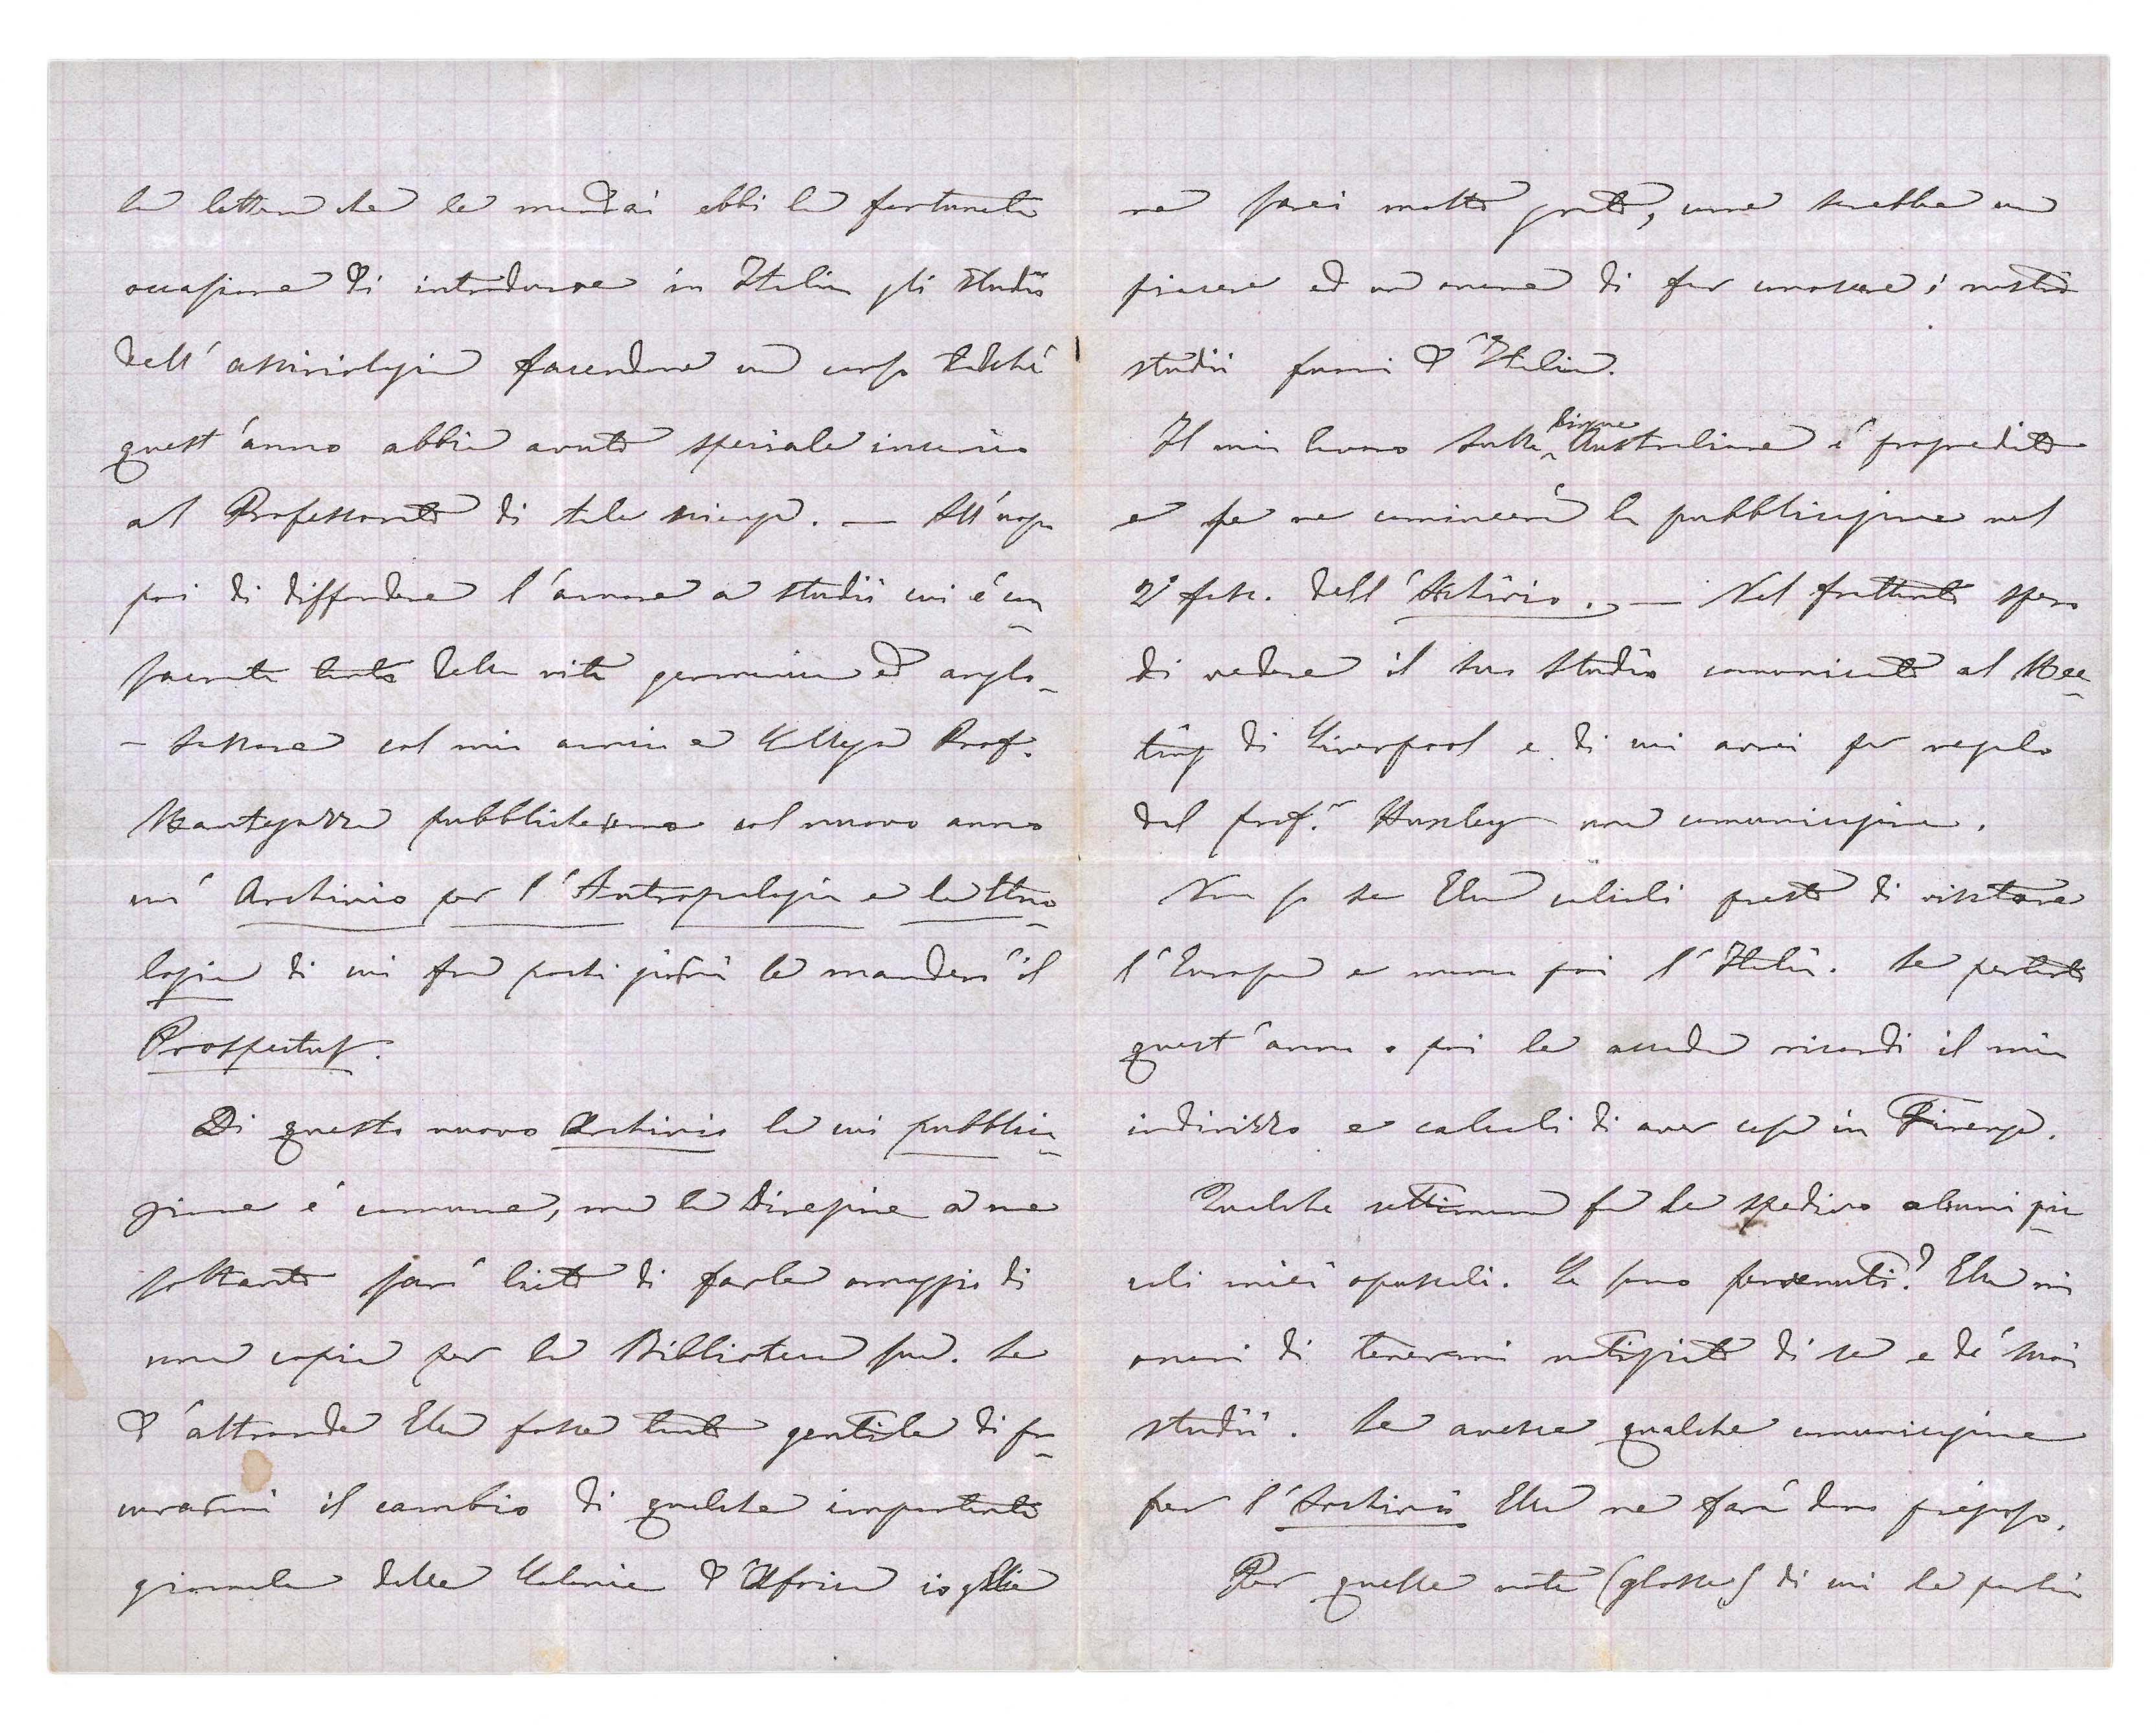 la lettera che le mandai ebbi la fortunata
occasione di introdurre in Italia gli studii
dell'assiriologia facendone un corso
quest'anno abbia avuto speciale incarico
al Professorato di tale scienza. — All'uopo
poi di diffondere l'amore a studii cui è con-
sacrata tanta della vita germanica ed anglo-
-sassone col mio amico e Collega Prof.
Mantegazza pubblicheremo col nuovo anno
un' Archivio per l'Antropologia e la Etno-
logia di cui fra pochi giorni le manderò il
Prospectus.
Di questo nuovo Archivio la cui pubblica-
zione è comune, ma la Direzione a me
soltanto sarò lieto di farle omaggio di
una copia per la Biblioteca sua. Se
d'altronde Ella fosse tanto gentile di pro-
curarmi il cambio di qualche importante
giornale delle Colonie d'Africa io gliene
ne sarei molto grato, come sarebbe un
piacere ed un onore di far conoscere i nostri
studii fuori d'Italia.
Il mio lavoro sulle lingue Australiane è progredito
e se ne comincerà la pubblicazione nel
2º fasc. dell'Archivio. — Nel frattanto spero
di vedere il suo studio comunicato al Mee-
ting di Liverpool e di cui avrei per regalo
dal prof.r Huxley una comunicazione.
Non so se Ella calcoli presto di visitare
l'Europa e meno poi l'Italia. Se pertanto
quest'anno o poi le accada ricordi il mio
indirizzo e calcoli di aver casa in Firenze.
Qualche settimana fa Le spedivo alcuni pic-
coli miei opuscoli. Le sono pervenuti? Ella mi
onori di tenermi notiziato di se e de' suoi
studii. Se avesse qualche comunicazione
per l'Archivio Ella ne farà dono prezioso.
Per quelle note (glosse) di cui le parlai